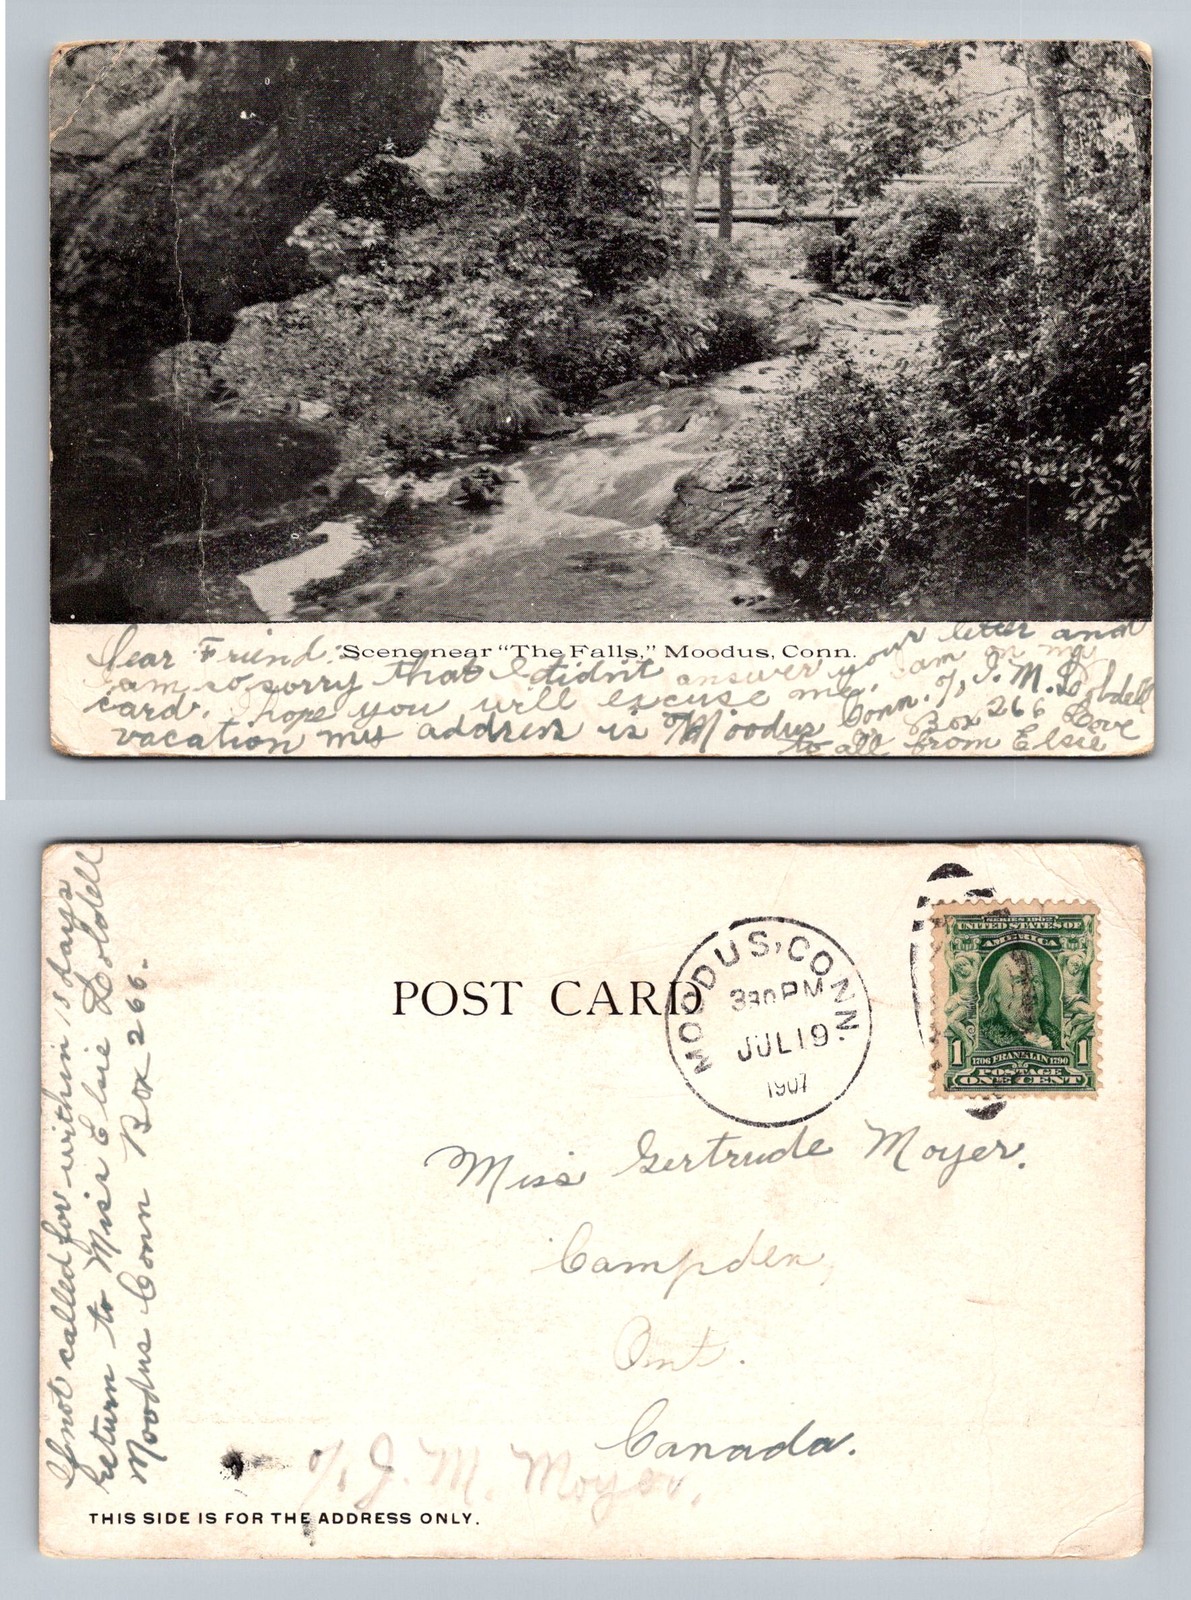 Scene near "The Falls," Moodus, Conn.
Dear Friend:
I am so sorry that I didn't answer your letter and
card. I hope you will escuse me. I am on my
vacation my address is Moodus Conn. c/o J. M. Lobdell
Box 266 Love
to all from Elsie
POST CARD
MOODUS, CONN.
330 PM
JUL 19
1907
SERIES 1902
UNITED STATES OF
AMERICA
1 1706 FRANKLIN 1790 1
POSTAGE
ONE CENT
Miss Gertrude Moyer.
Campden,
Ont.
Canada.
c/o J. M. Moyer.
THIS SIDE IS FOR THE ADDRESS ONLY.
If not called for within 15 days
return to Miss Elsie Lobdell
Moodus Conn Box 266.